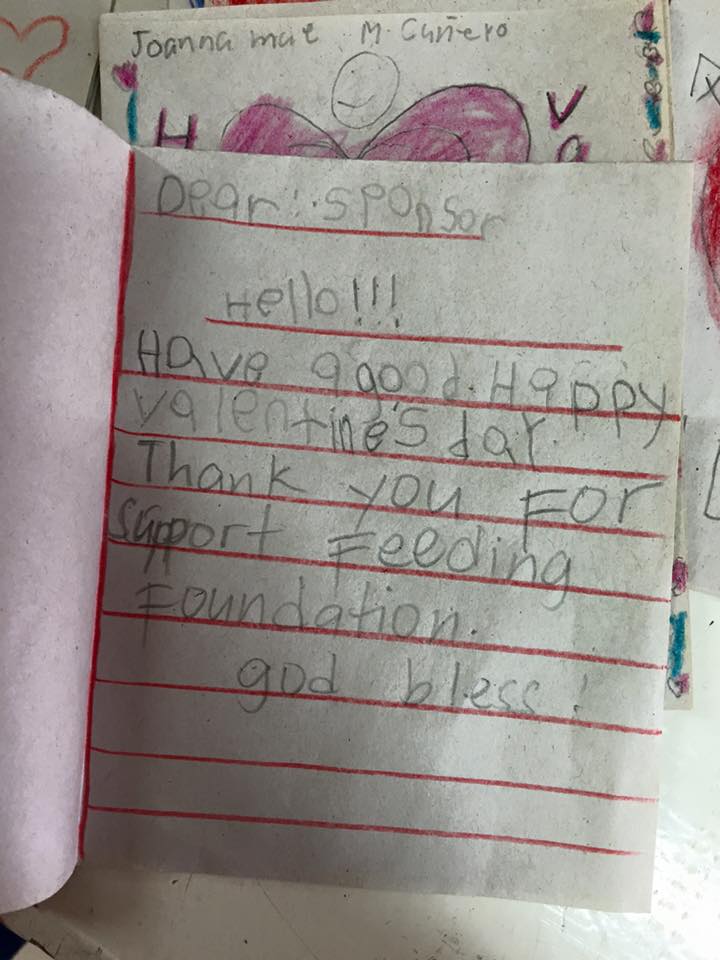 Joanna mae M. Cañero
H V
a
Dear: Sponsor
Hello!!!
Have a good. Happy
valentine's day.
Thank you For
Support Feeding
Foundation.
god bless!